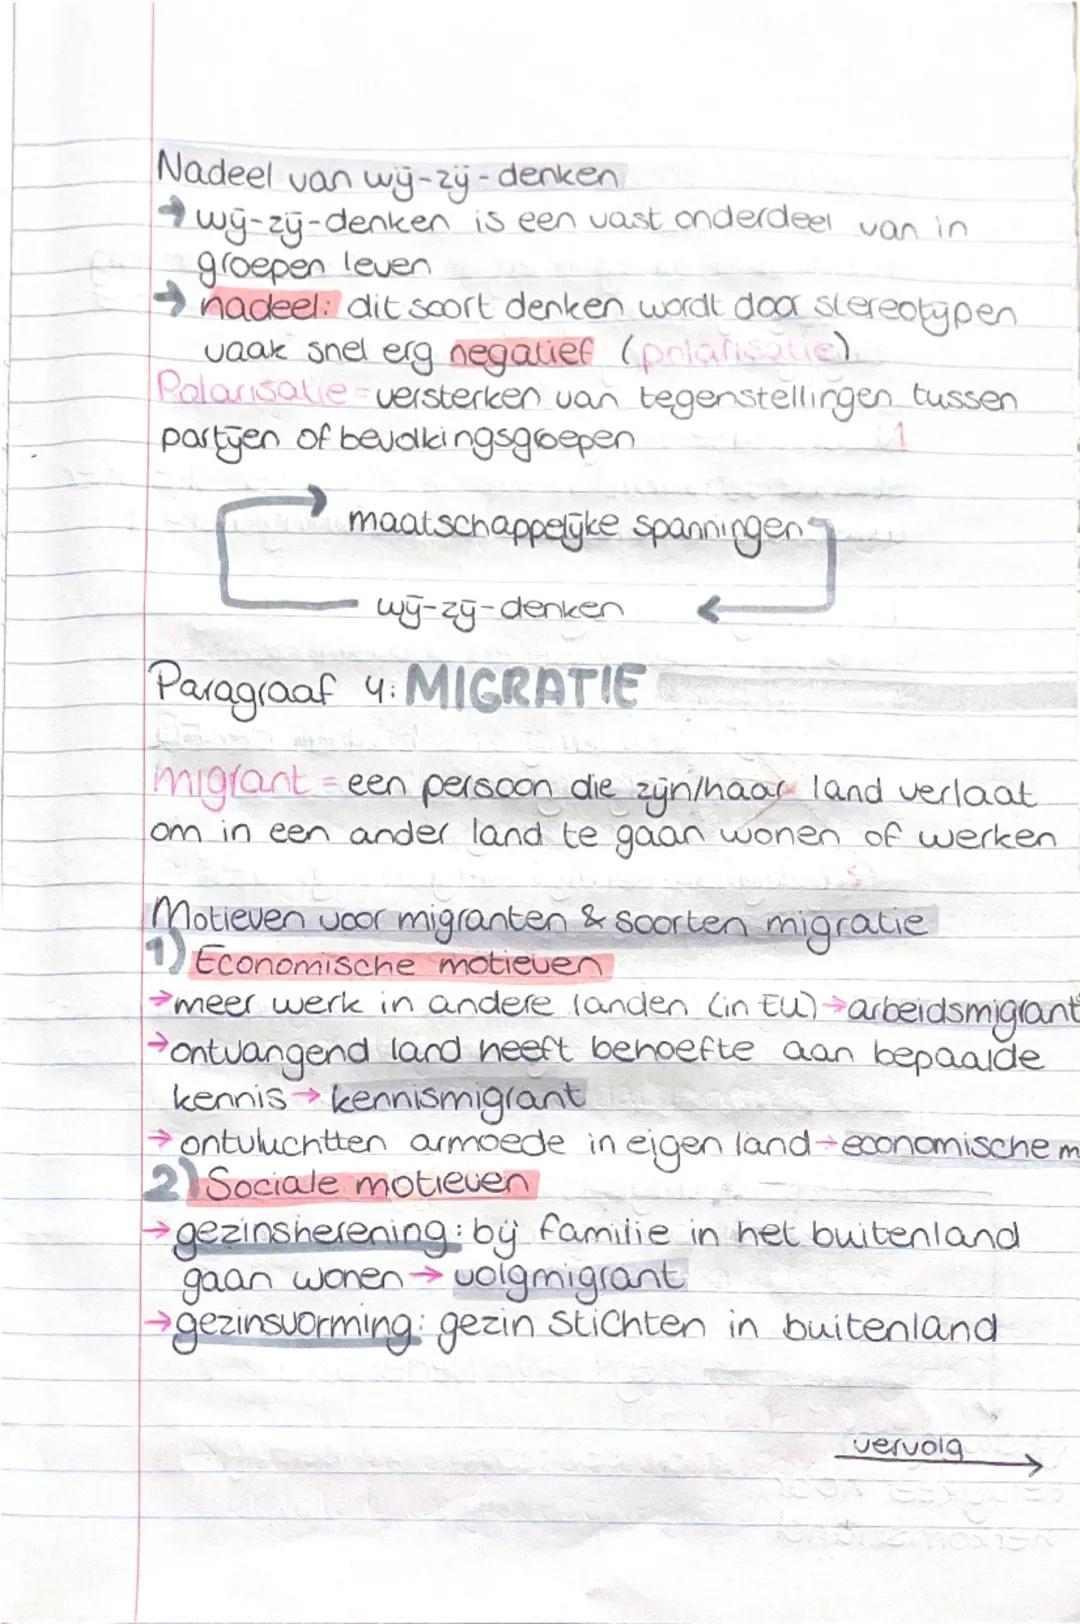 Nadeel van wij-zij-denken
→ wij-zij-denken is een vast onderdeel van in
groepen leven
→ nadeel: dit soort denken wordt door stereotypen
vaak snel erg negatief (polarisatie)
Polarisatie = versterken van tegenstellingen tussen
partijen of bevolkingsgroepen
maatschappelijke spanningen
wij-zij-denken
Paragraaf 4: MIGRATIE
migrant = een persoon die zijn/haar land verlaat
om in een ander land te gaan wonen of werken
Motieven voor migranten & soorten migratie
1) Economische motieven
→ meer werk in andere landen (in EU) → arbeidsmigrant
→ ontvangend land heeft behoefte aan bepaalde
kennis → kennismigrant
→ ontvluchtten armoede in eigen land → economische m
2) Sociale motieven
→ gezinsherening: bij familie in het buitenland
gaan wonen → volgmigrant
→ gezinsvorming: gezin stichten in buitenland
vervolg